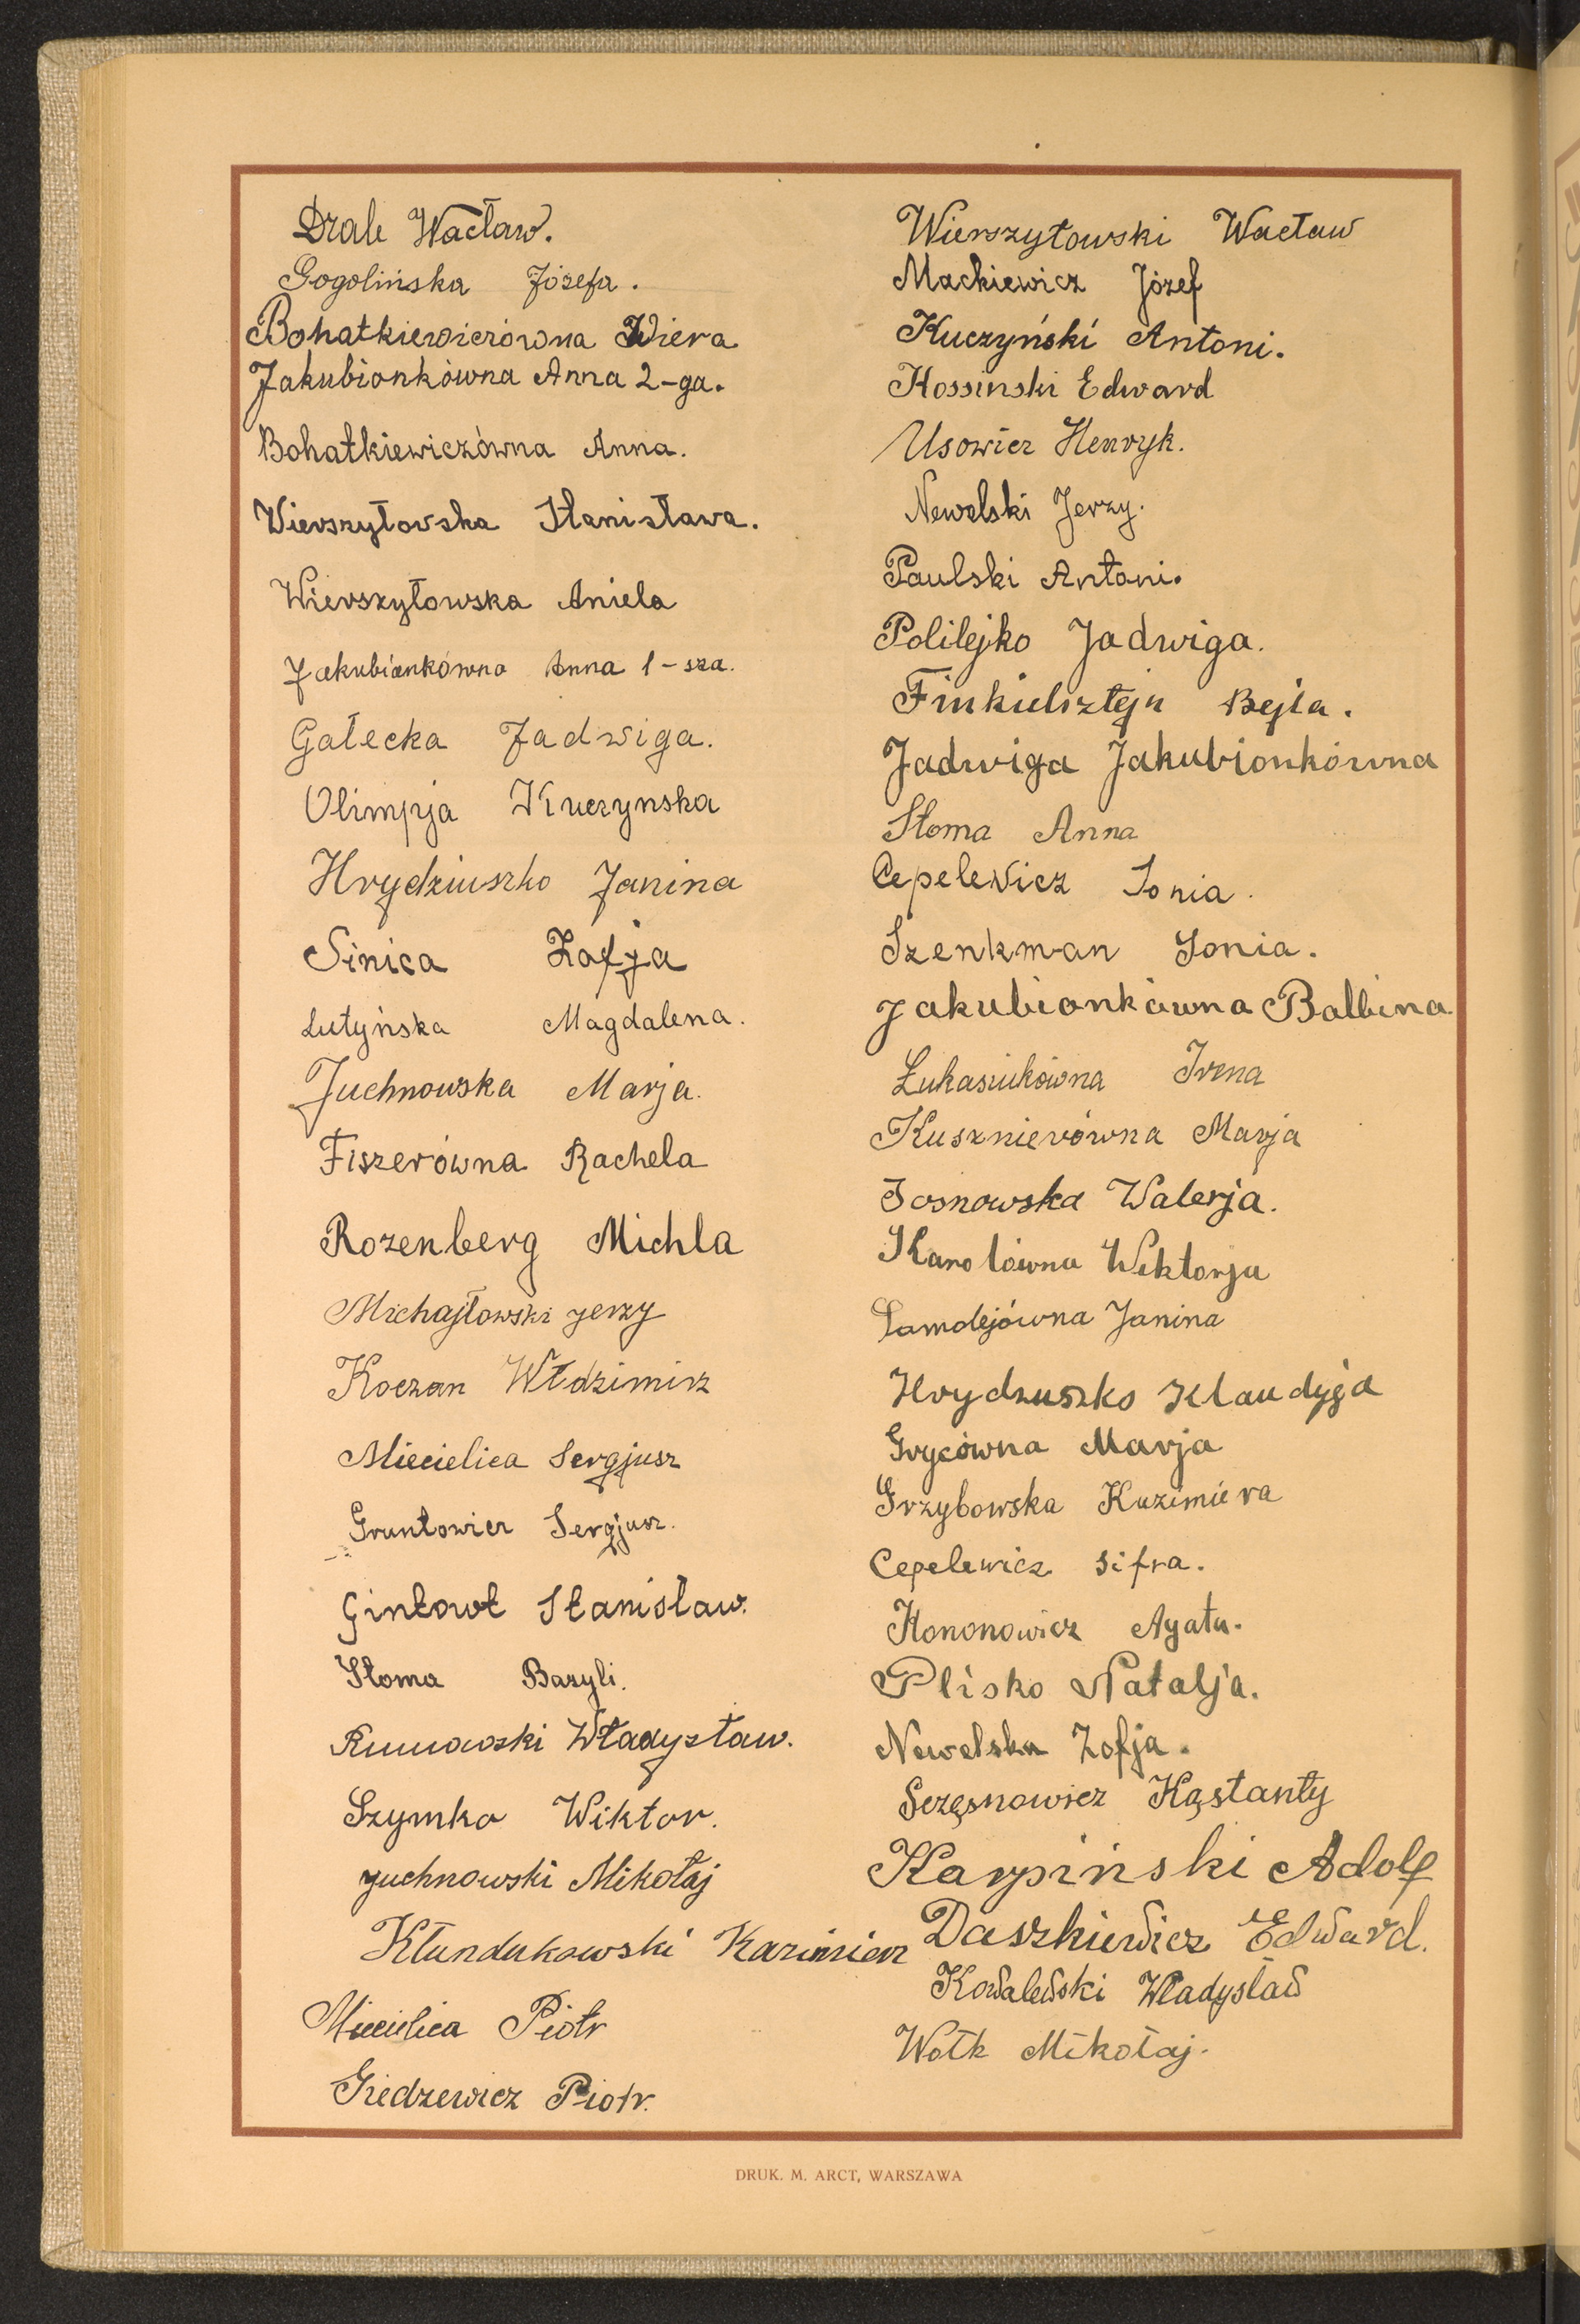 Drale Wacław.
Gogolińska Józefa.
Bohatkiewiczówna Wiera
Jakubionkówna Anna 2-ga.
Bohatkiewiczówna Anna.
Wierszyłowska Stanisława.
Wierszyłowska Aniela
Jakubionkówna Anna 1-sza.
Gałecka Jadwiga.
Olimpja Kuczynska
Hrydziuszko Janina
Sinica Zofja
Lutyńska Magdalena.
Juchnowska Marja.
Fiszerówna Rachela
Rozenberg Michla
Michajłowski Jerzy
Koczan Włdzimirz
Miecielica Sergjusz
Gruntowicz Sergjusz.
Gintowt Stanisław.
Słoma Bazyli.
Władysław.
Szymko Wiktor.
Juchnowski Mikołaj
Kłundukowski Kazimierz
Miecielica Piotr
Giedzewicz Piotr.
Wierszyłowski Wacław
Mackiewicz Józef
Kuczyński Antoni.
Kossinski Edward
Usowicz Henryk.
Newelski Jerzy.
Paulski Antoni.
Polilejko Jadwiga.
Finkielsztejn Bejla.
Jadwiga Jakubionkówna
Słoma Anna
Cepelewicz Sonia.
Szenkman Sonia.
Jakubionkówna Balbina
Łukasiukówna Irena
Kusznierówna Marja
Sosnowska Walerja.
Karolówna Wiktorja
Lamdejówna Janina
Hrydzuszko Klaudyja
Grycówna Marja
Grzybowska Kazimiera
Cepelewicz Sifra.
Kononowicz Agata.
Plisko Natalja.
Newelska Zofja.
Szczęsnowicz Kąstanty
Karpiński Adolf
Daszkiewicz Edward.
Kowalewski Władysław
Wołk Mikołaj.
DRUK. M. ARCT, WARSZAWA